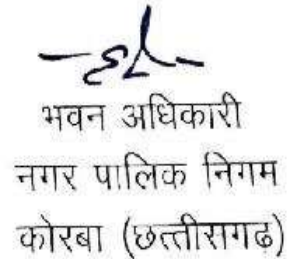 भवन अधिकारी
नगर पालिक निगम
कोरबा (छत्तीसगढ़)